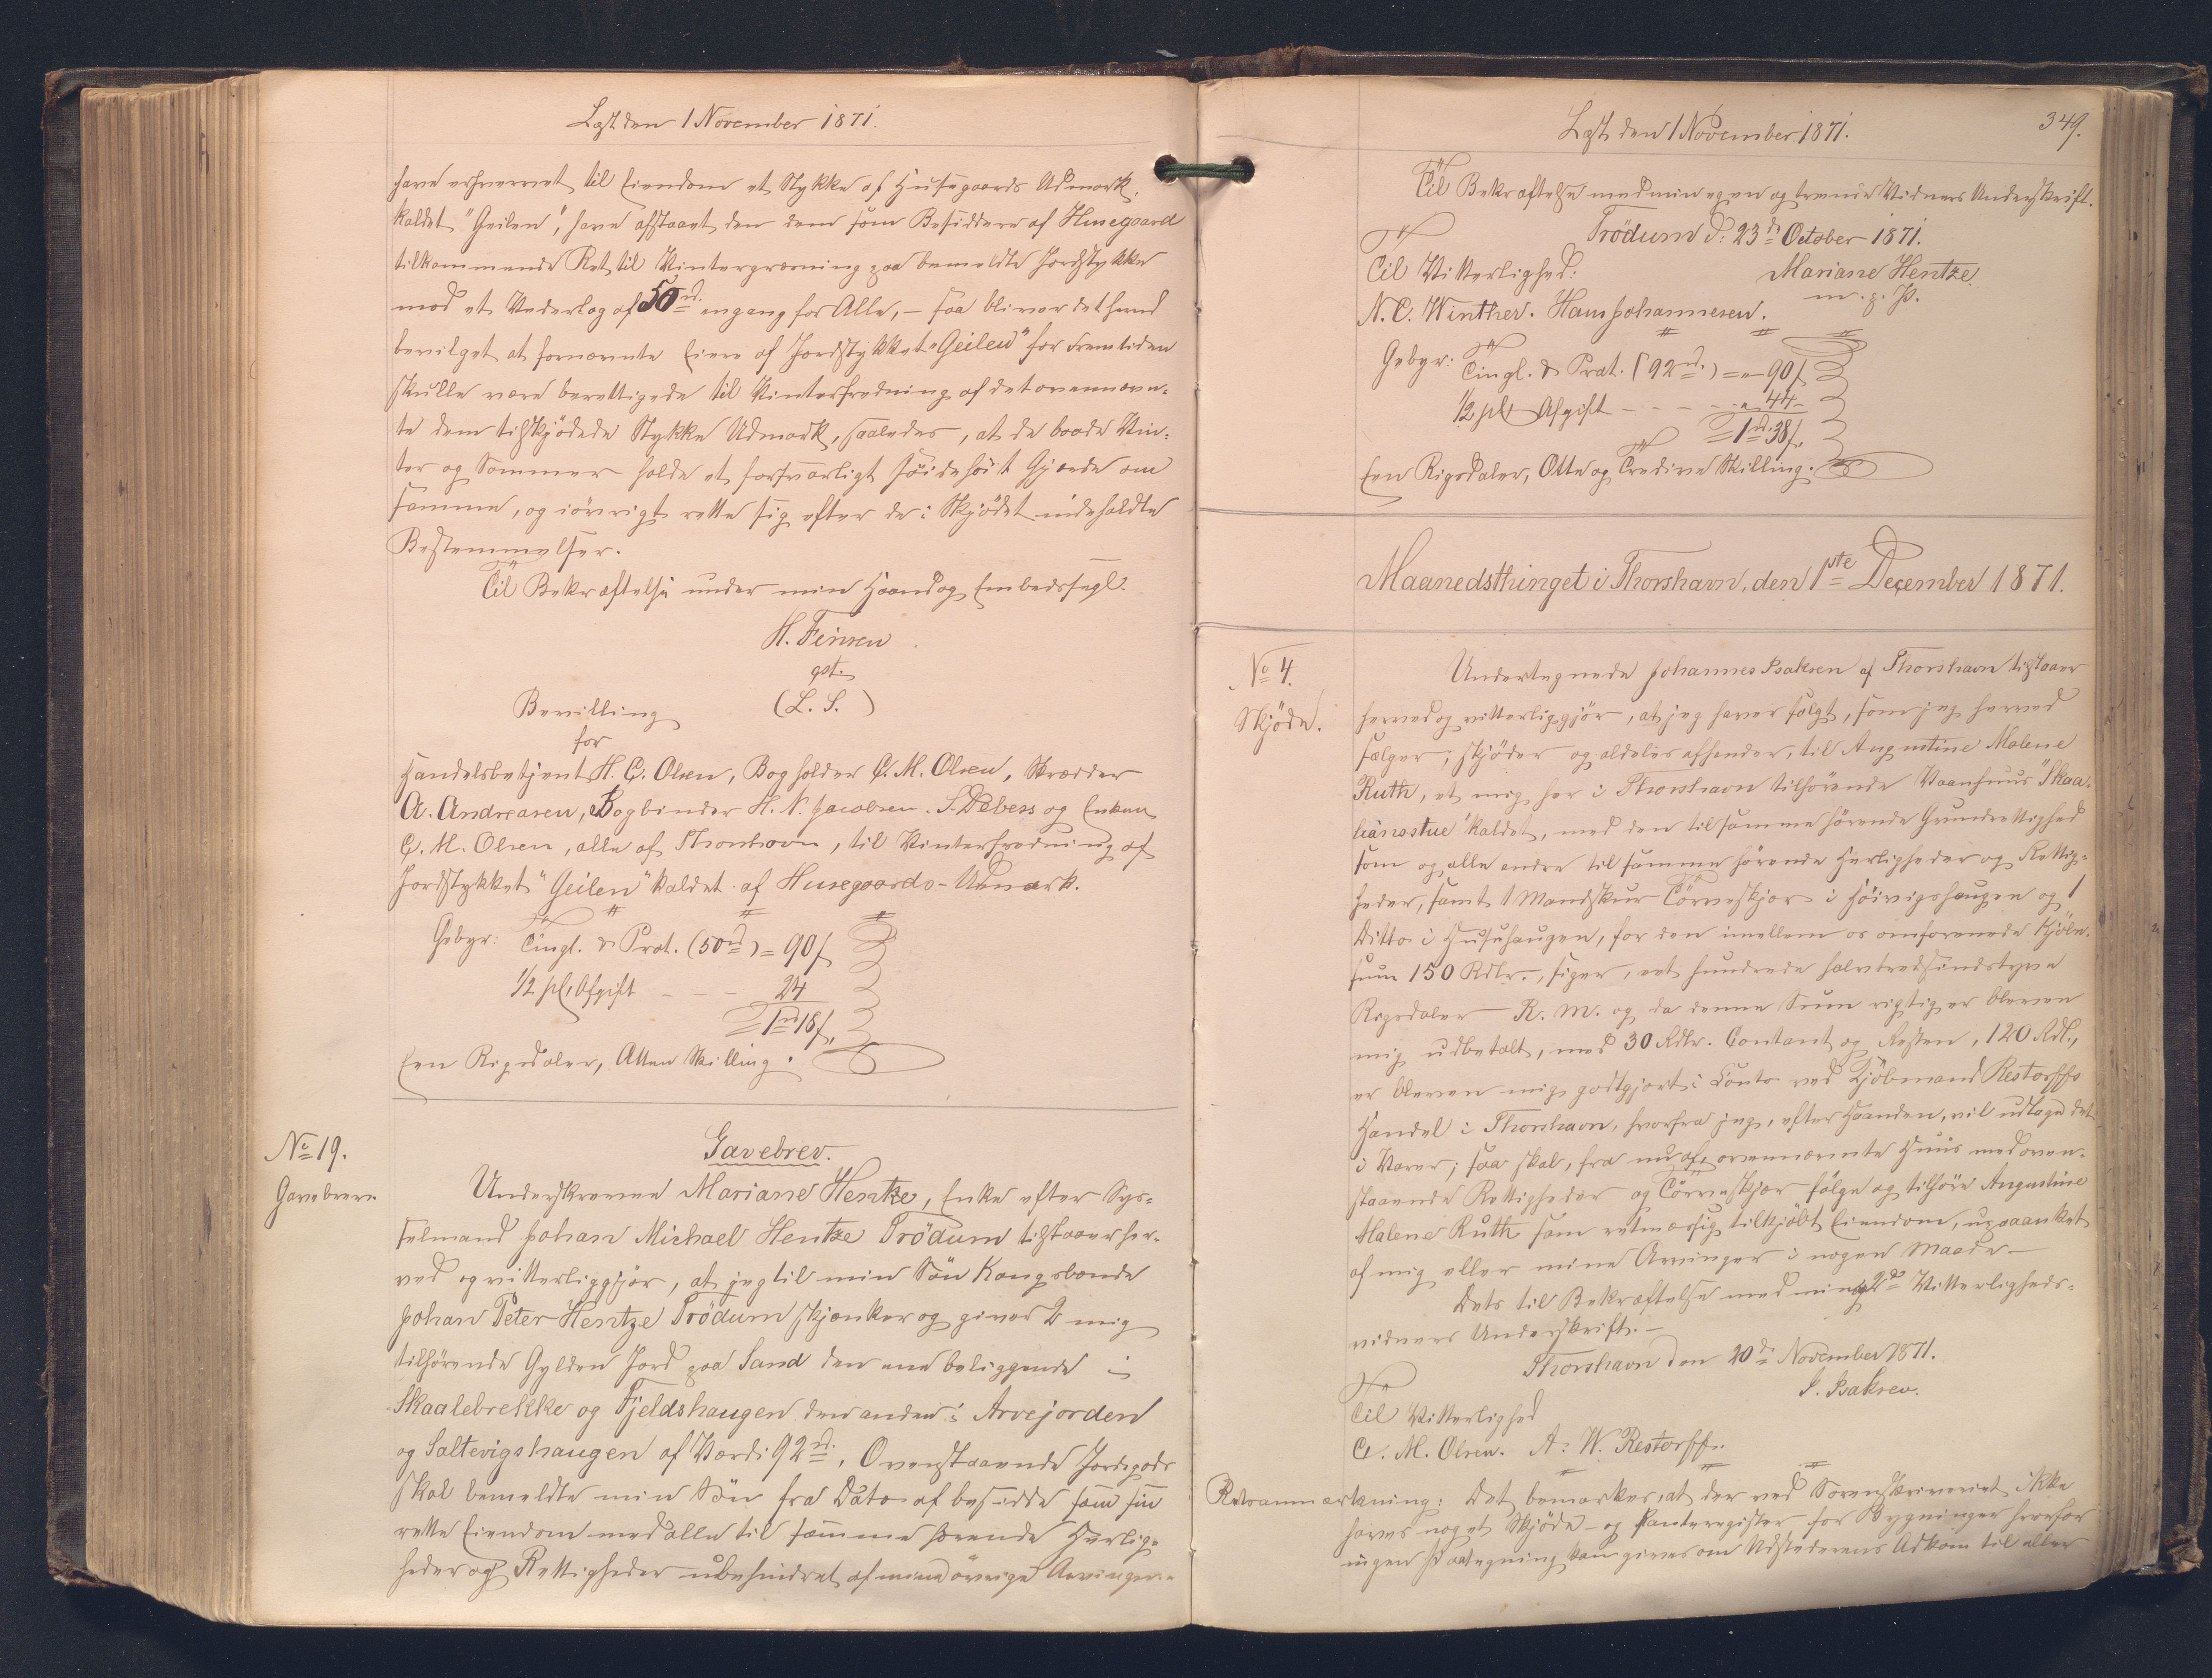 Læst den 1 November 1871.
have erhvervet til Eiendom et Stykke af Husegaards Udmark,
kaldet "Geilen", have afstaaet den dem som Besiddere af Husegaard
tilkommende Ret til Vintergræsning paa bemeldte Jordstykke
mod et Vederlag af 50 rd. engang for Alle, - saa bliver det herved
bevilget at fornævnte Eiere af Jordstykket "Geilen" for Fremtiden
skulle være berettigede til Vinterfredning af det ovennævn-
te dem tilskjödede Stykke Udmark, saaledes, at de baade Vin-
ter og Sommer holde et forsvarligt höidehöit Gjærde om
samme, og iövrigt rette sig efter de i Skjödet indeholdte
Bestemmelser.
Til Bekræftelse under min Haand og Embedssegl.
H. Finsen
cst.
(L. S.)
Bevilling
for
Handelsbetjent H. C. Olsen, Bogholder C. M. Olsen, Skræder
A. Andreasen, Bogbinder H. N. Jacobsen. S. Debess og Enken
C. M. Olsen, alle af Thorshavn, til Vinterfredning af
Jordstykket "Geilen" kaldet af Husegaards-Udmark.
Gebyr: Tingl. & Prot. (50 rd) = 90 s
1/2 pCt Afgift - - - 24
= 1 rd 18 s.
Een Rigsdaler, Atten Skilling.
No 19.
Gavebrev
Gavebrev.
Underskrevne Mariane Hentze, Enke efter Sys-
selmand Johan Michael Hentze Trödum tilstaaer her-
ved og vitterliggjør, at jeg til min Sön Kongsbonde
Johan Peter Hentze Trödum skjænker og giver 2 mig
tilhörende Gylden Jord paa Sand den ene beliggende i
Skaalebrekke og Fjeldshaugen den anden i Arvejorden
og Saltevigshaugen af Værdi 92 rd. Ovenstaaende Jordegods
skal bemeldte min Sön fra Dato af besidde som sin
rette Eiendom med alle til samme hörende Herlig-
heder og Rettigheder ubehindret af mine övrige Arvinger.
Læst den 1 November 1871.
349.
Til Bekræftelse med min egen og tvende Vidners Underskrift.
Trödum d: 23 d. October 1871.
Til Vitterlighed:
Mariane Hentze
m. p. P.
N. C. Winther. Hans Johannesen.
Gebyr: Tingl. & Prot. (92 rd.) = " - 90 s
1/2 pCt Afgift - - - - " 44 -
= 1 rd. 38 s.
Een Rigsdaler, Otte og Tredive Skilling.
Maanedsthinget i Thorshavn, den 1ste December 1871.
No 4.
Skjöde.
Undertegnede Johannes Isaksen af Thorshavn tilstaaer
herved og vitterliggjör, at jeg haver solgt, som jeg herved
sælger, skjöder og aldeles afhender, til Augustine Malene
Ruth, et mig her i Thorshavn tilhörende Vaanhuus "Skaa-
hansstue" kaldet, med den til samme hörende Grundrettighed
som og alle andre til samme hörende Herligheder og Rettig-
heder, samt 1 Mandskur Törveskjær i Höivigshaugen og 1
Ditto i Husuhaugen, for den imellem os omforenede Kjöbe-
sum 150 Rdlr., siger, eet hundrede halvtredsindstyve
Rigsdaler R. M. og da denne Sum rigtig er bleven
mig udbetalt, med 30 Rdlr. Contant og Resten, 120 Rdl.,
er bleven mig godtgjort i Conto ved Kjöbmand Restorffs
Handel i Thorshavn, hvorfra jeg, efter Haanden, vil udtage det
i Varer; saa skal, fra nu af, ovennævnte Huus med oven-
staaende Rettigheder og Törveskjær fölge og tilhöre Augustine
Malene Ruth som retmæssig tilkjöbt Eiendom, upaaanket
af mig eller mine Arvinger i nogen Maade. -
Dets til Bekræftelse med min og 2de Vitterligheds-
vidners Underskrift. -
Thorshavn den 20de November 1871.
J. Isaksen.
Til Vitterlighed
C. M. Olsen. A. W. Restorff.
Retsanmærkning: Det bemærkes, at der ved Sorenskriveriet ikke
haves noget Skjöde- og Panteregister for Bygninger hvorfor
ingen Paategning kan gives om Udstederens Adkom til eller